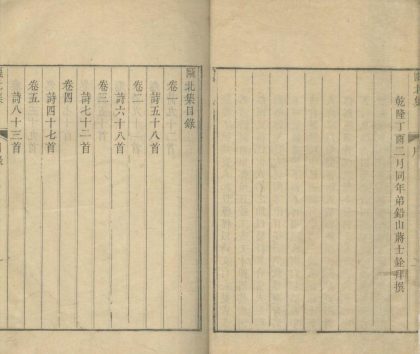 乾隆丁酉二月同年弟鉛山蔣士銓拜撰
甌北集目錄
卷一
詩五十八首
卷二
詩六十八首
卷三
詩七十二首
卷四
詩四十七首
卷五
詩八十三首